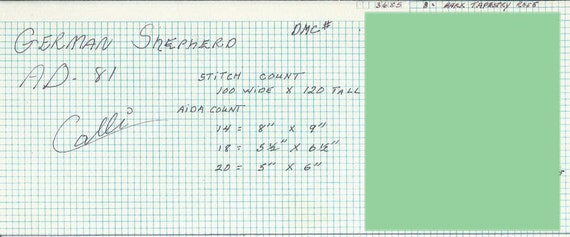 3685 8- DARK TAPESTRY ROSE
GERMAN SHEPHERD DMC#
AD-81
STITCH COUNT
100 WIDE X 120 TALL
Calli
AIDA COUNT
14 = 8" X 9"
18 = 5½" X 6½"
20 = 5" X 6"